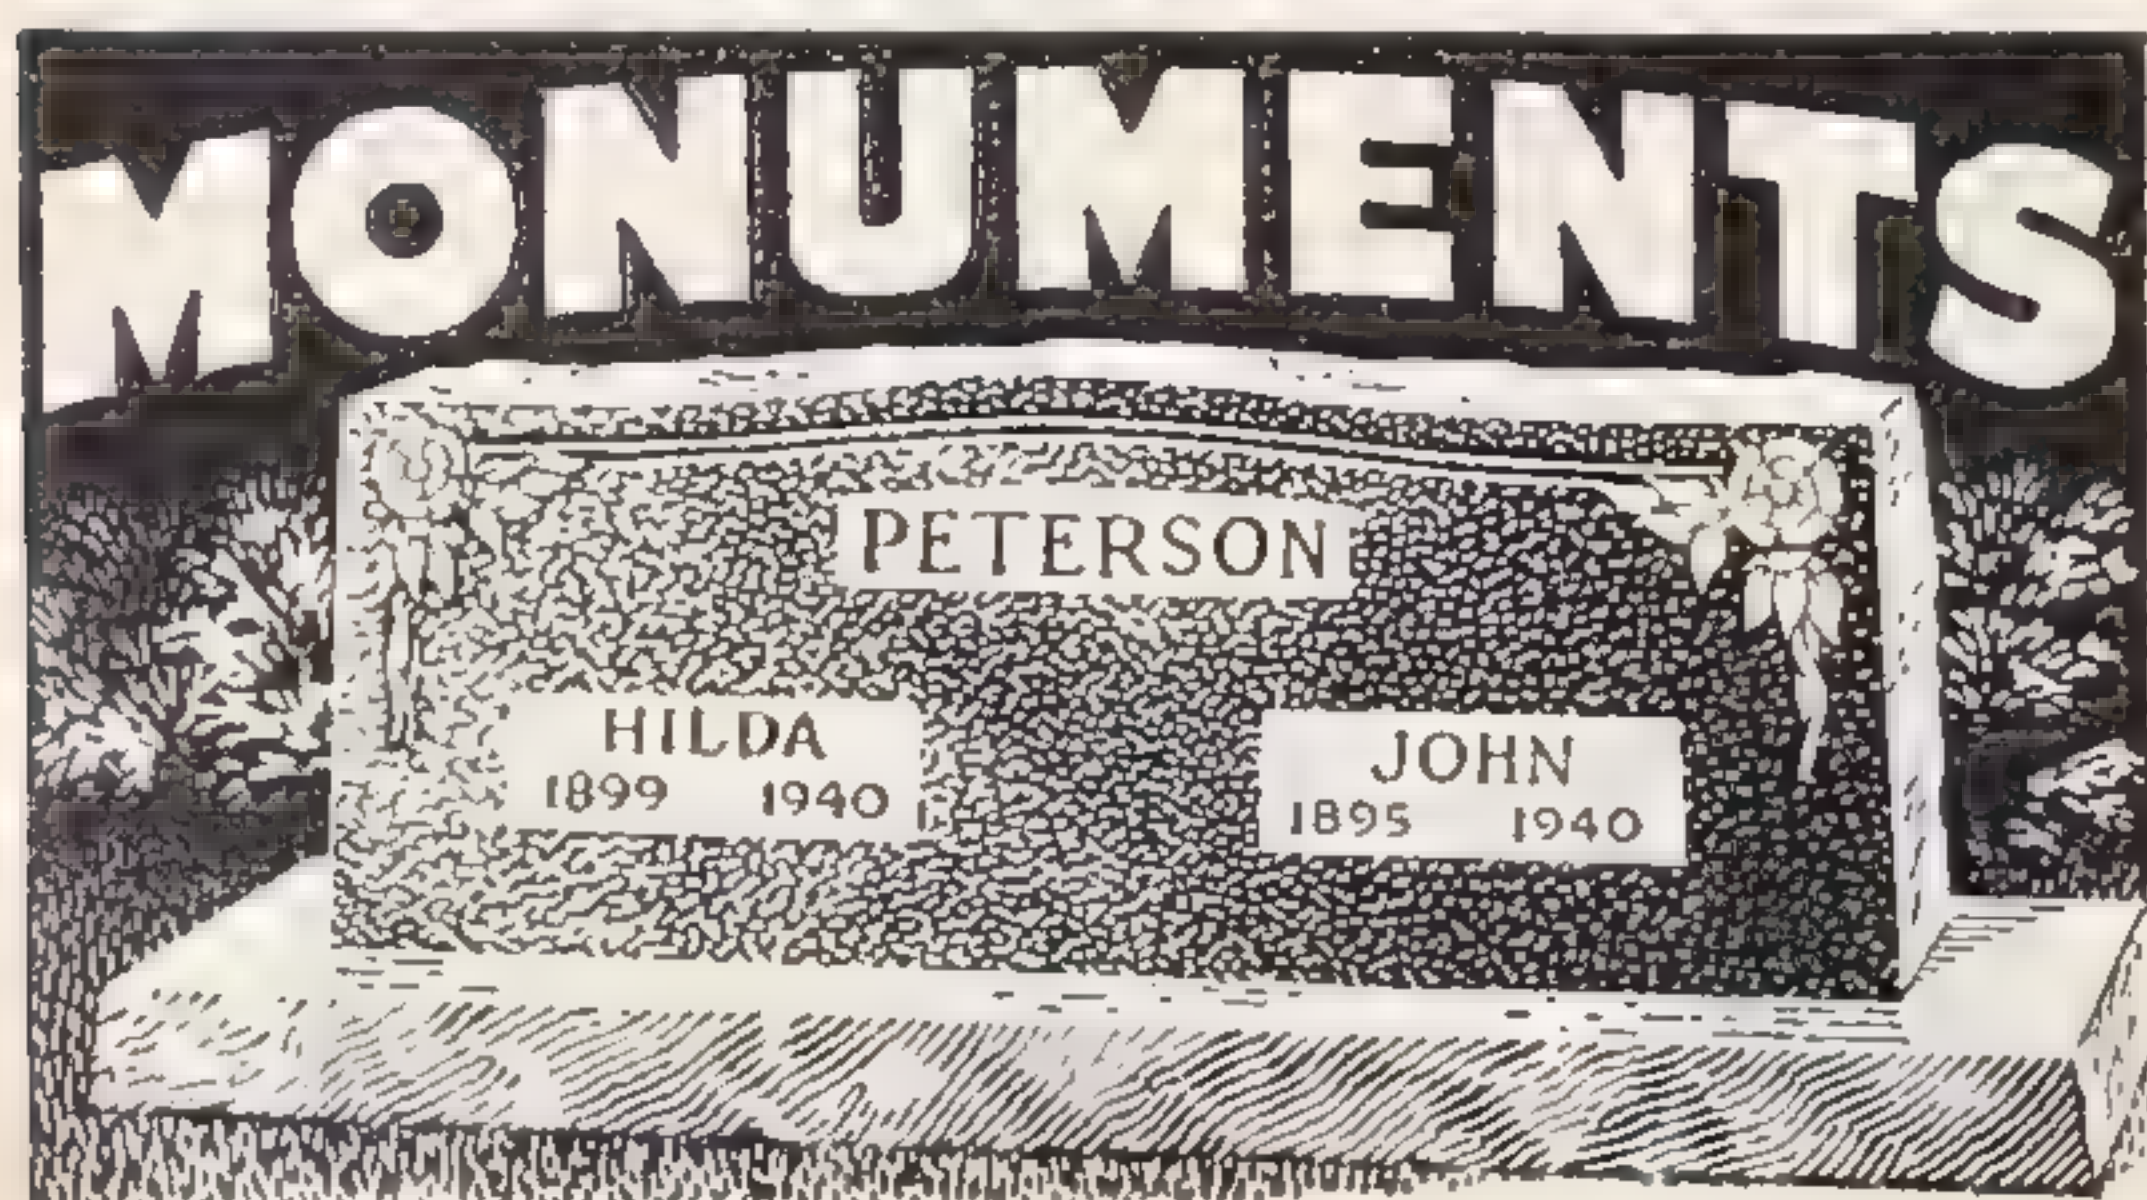 MONUMENTS
PETERSON
HILDA
1899 1940
JOHN
1895 1940